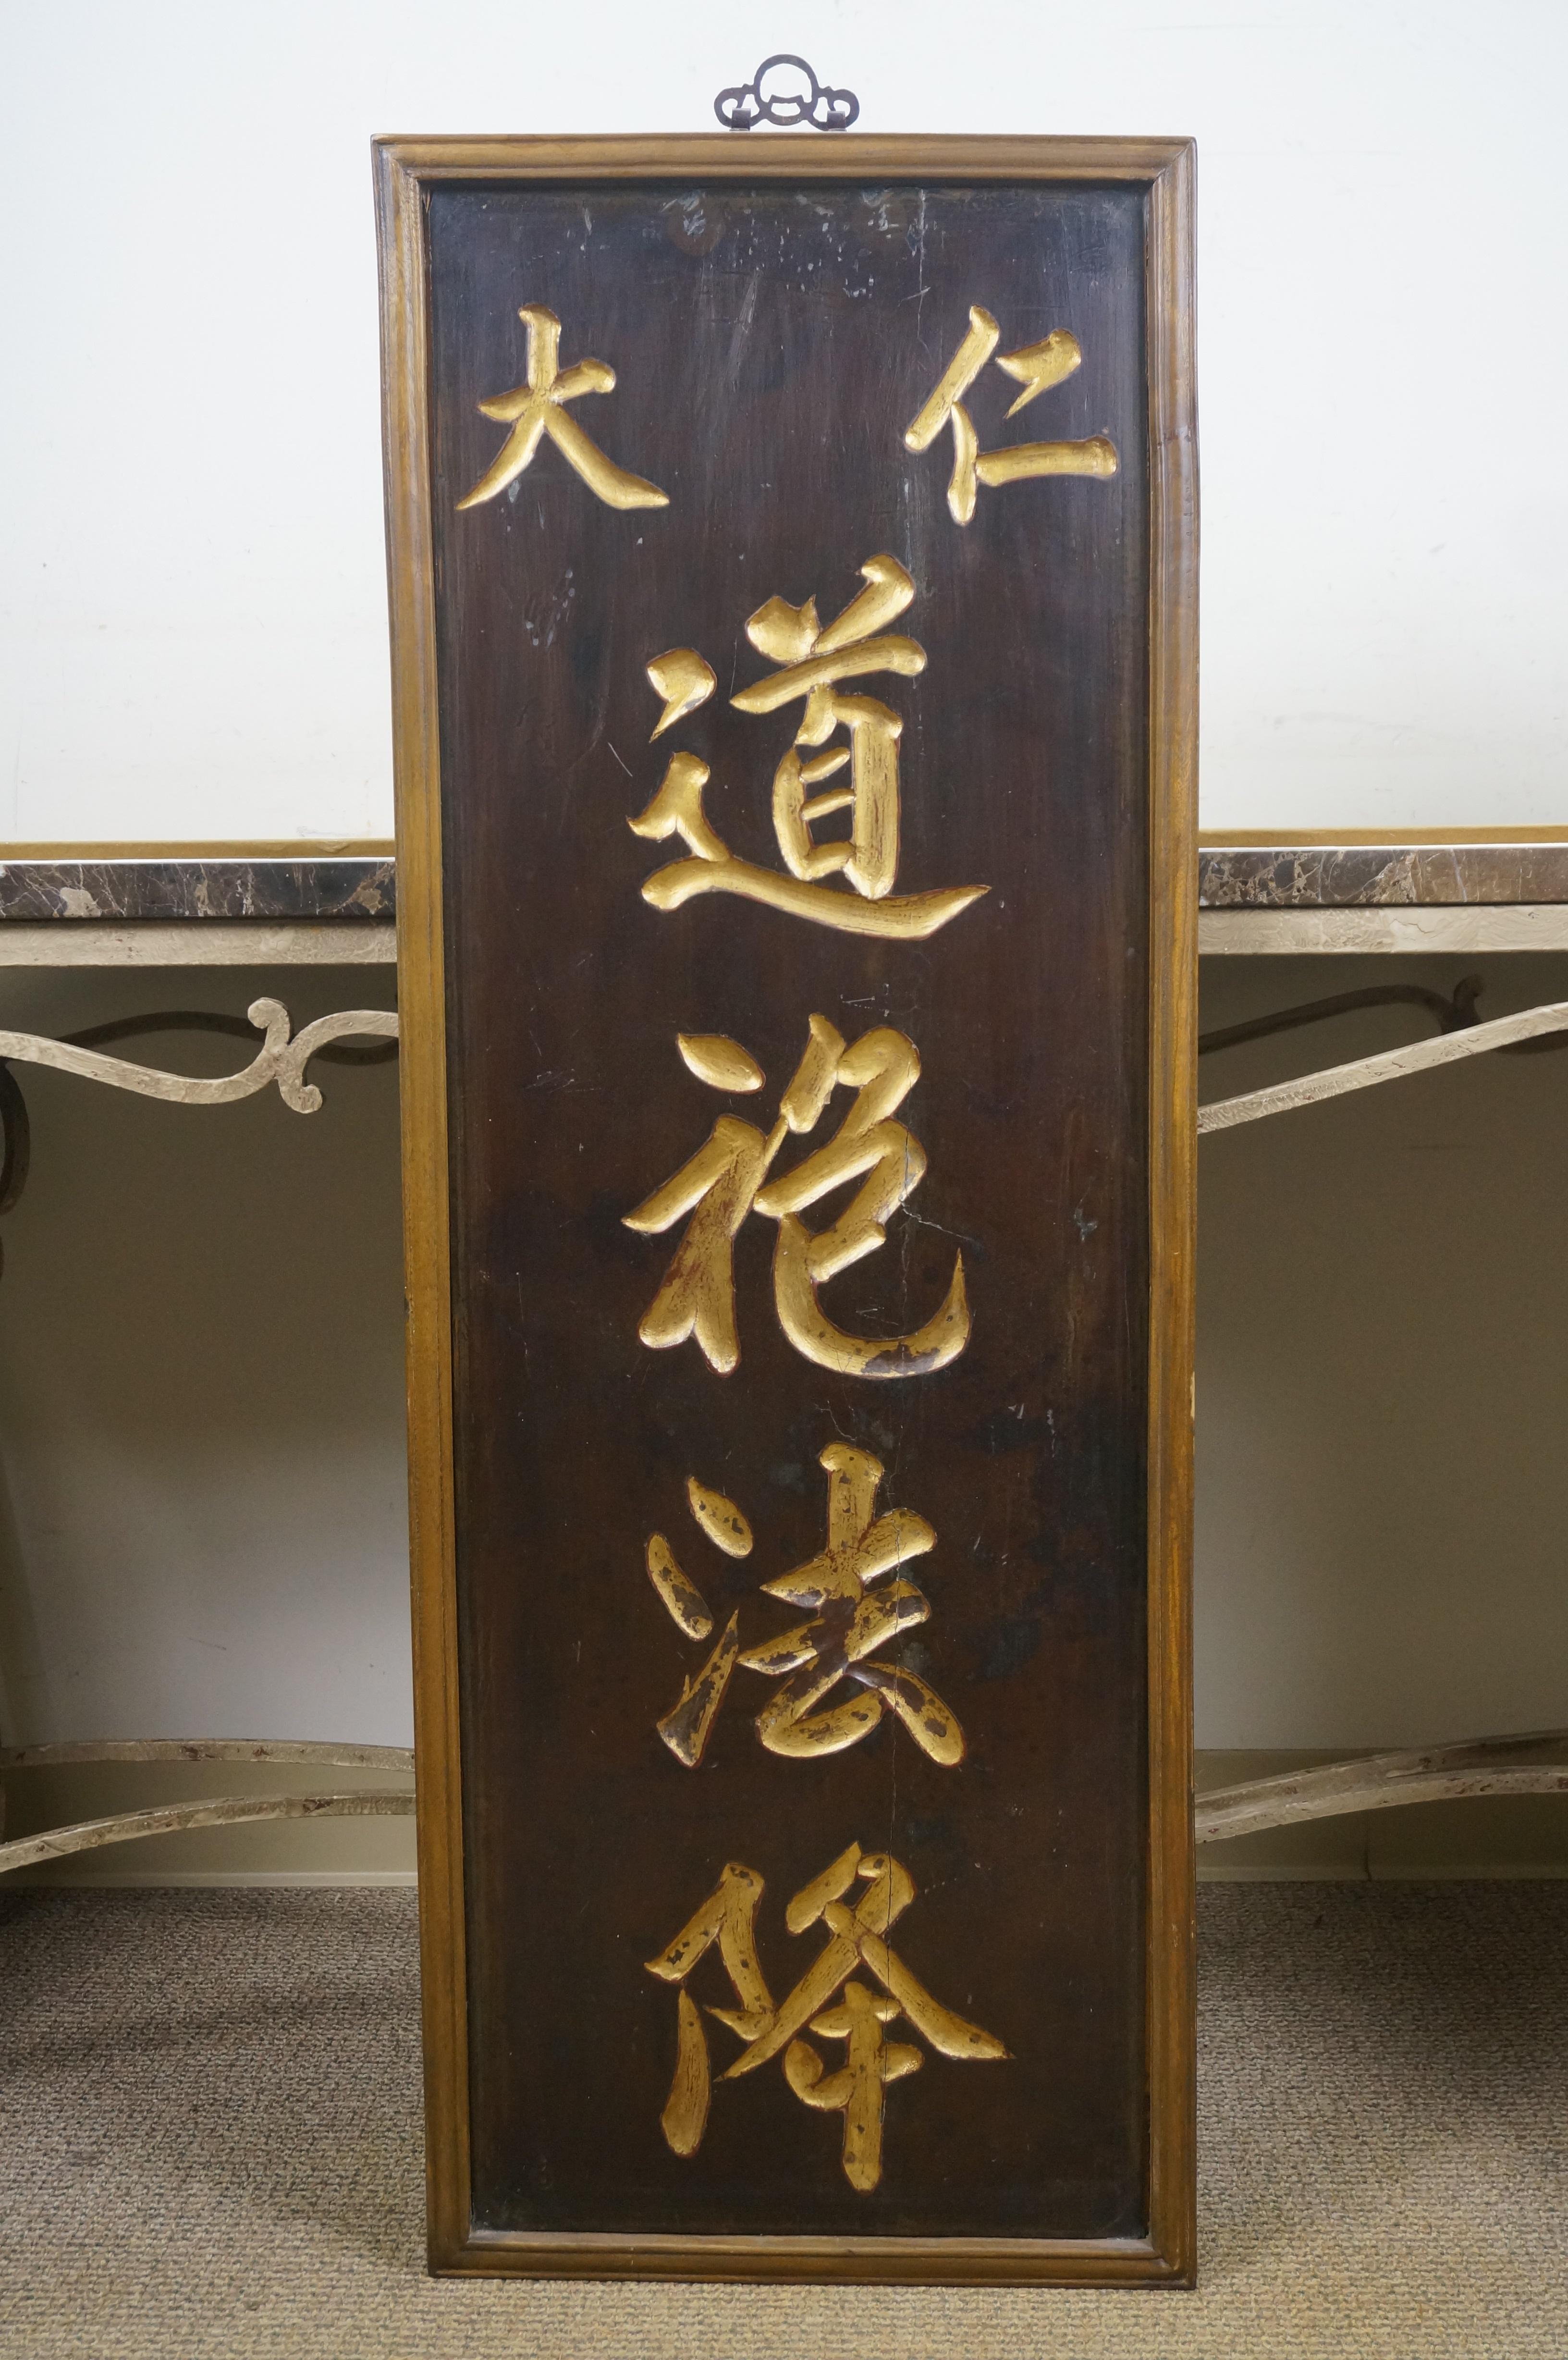 仁大
道袍法降